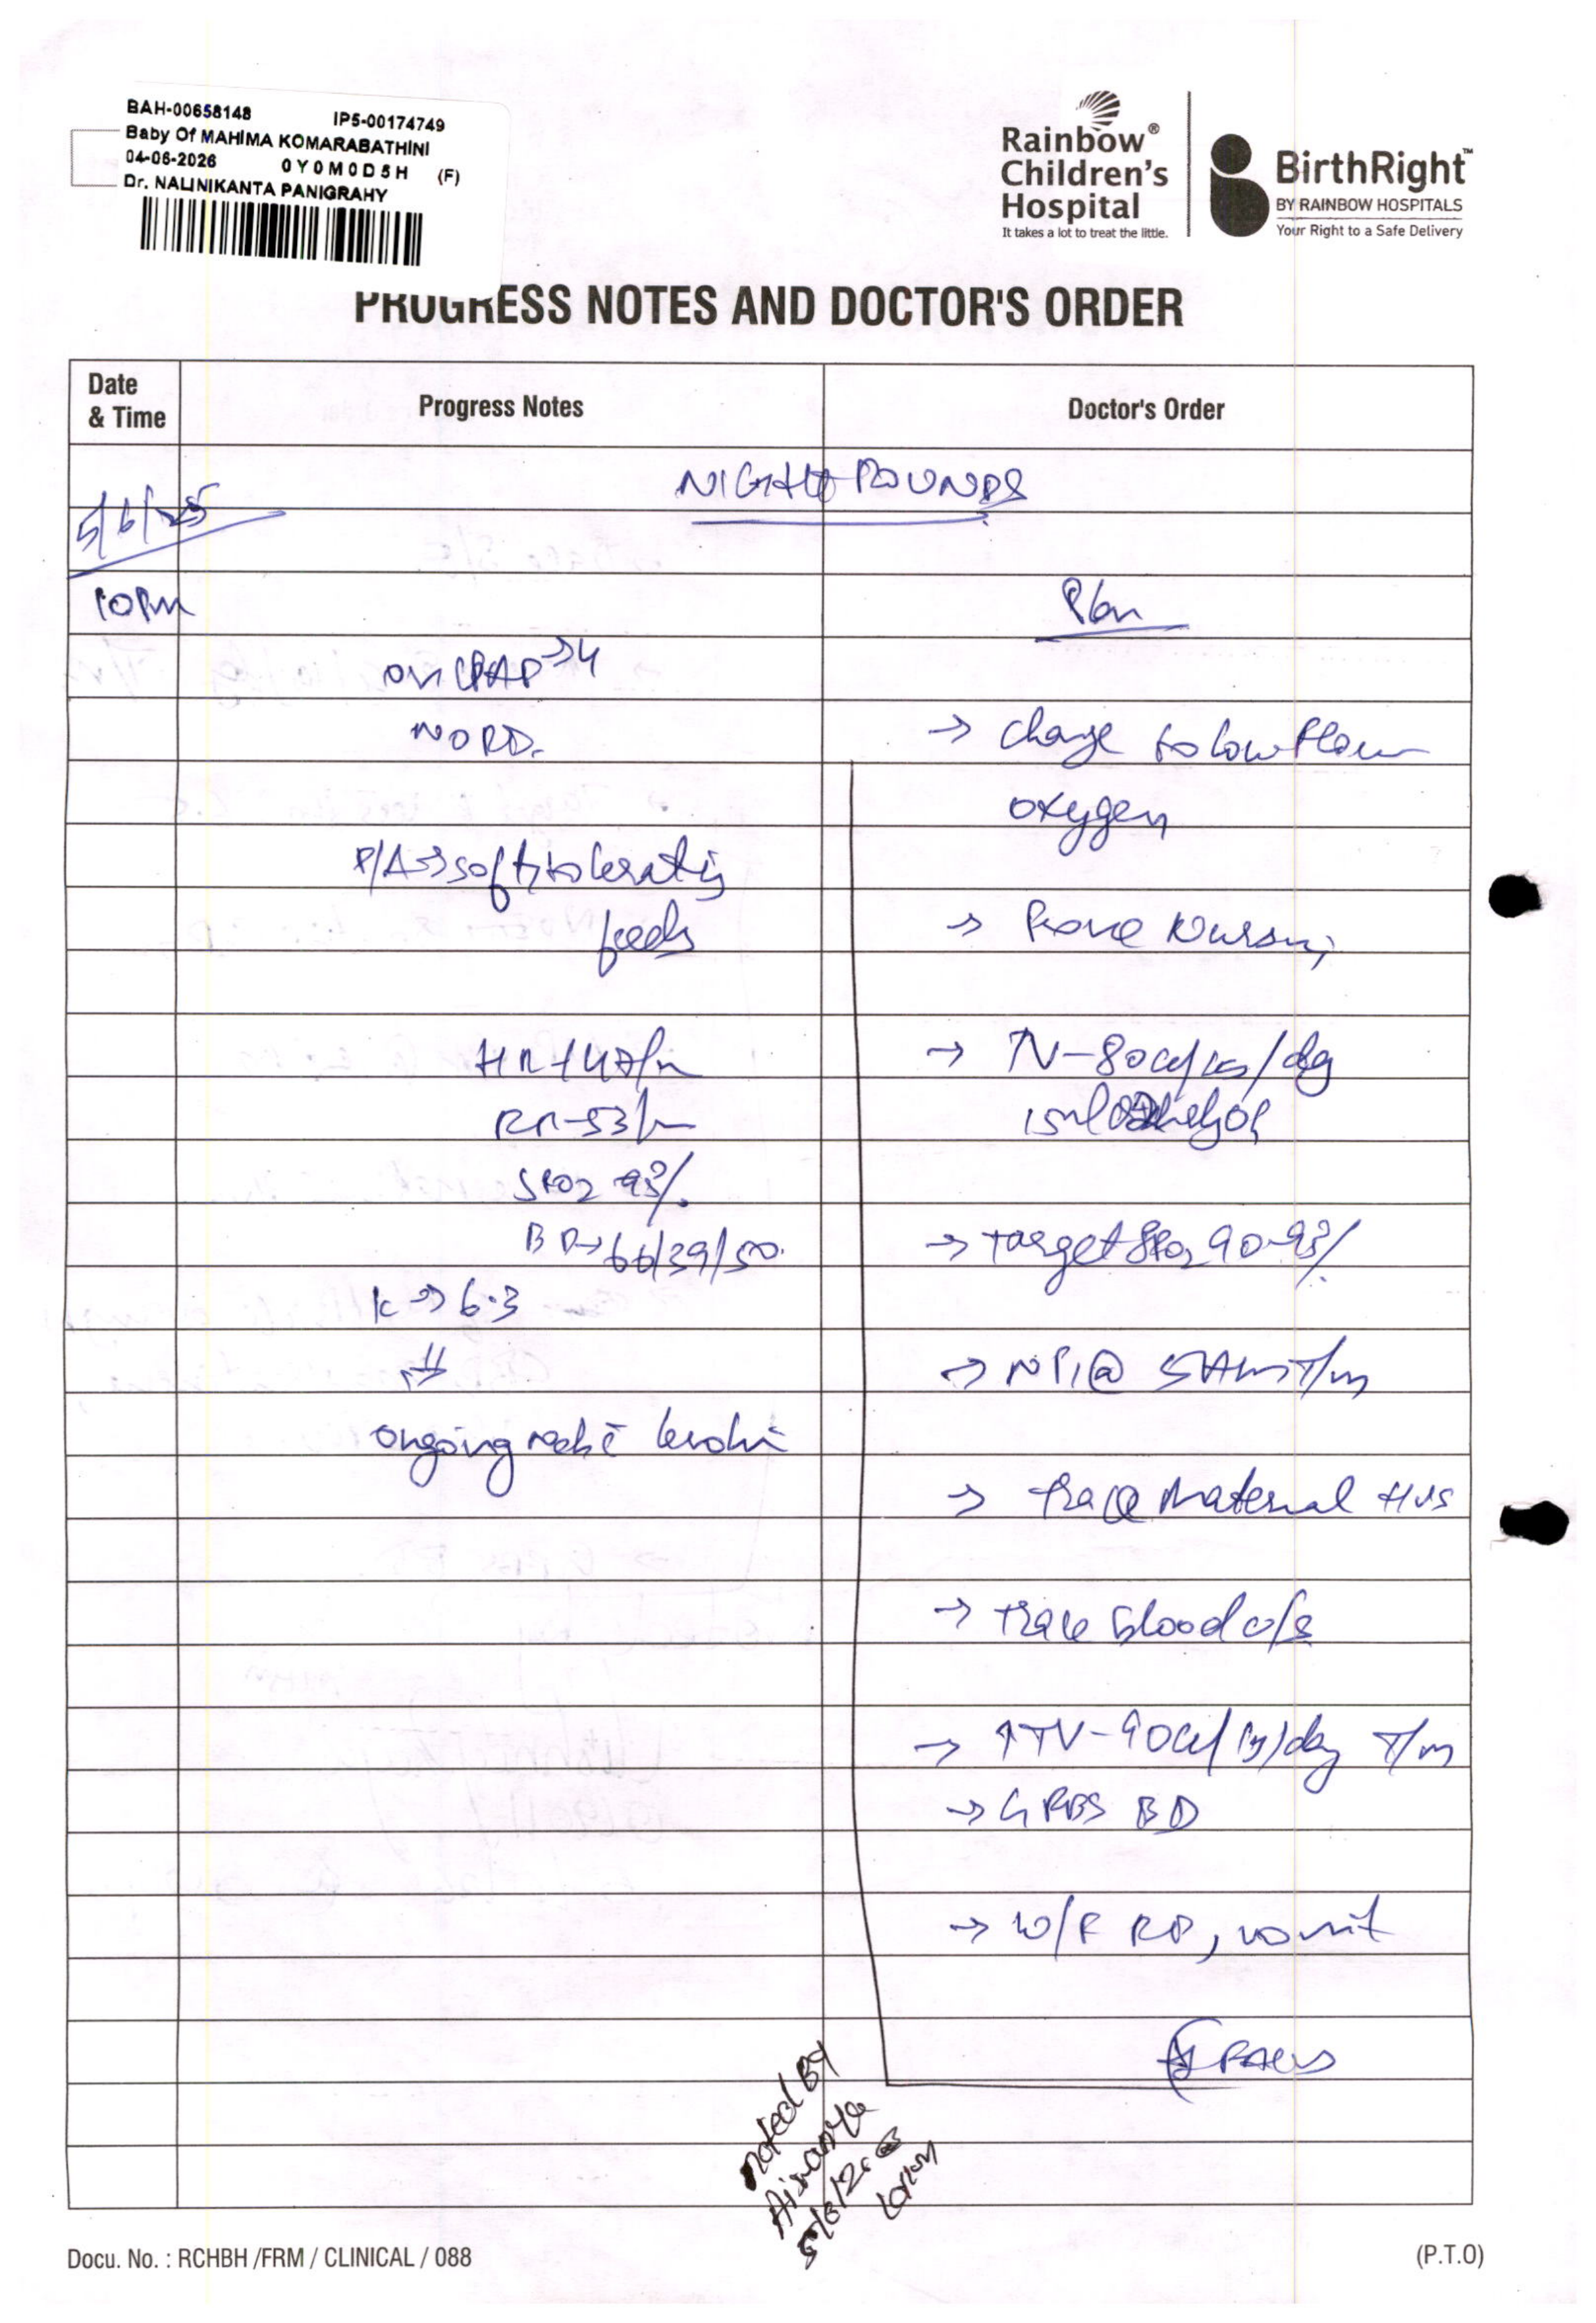 BAH-00658148 IP5-00174749
Baby Of MAHIMA KOMARABATHINI
04-06-2026 0Y0M0D5H (F)
Dr. NALINIKANTA PANIGRAHY
Rainbow®
Children's
Hospital
It takes a lot to treat the little.
BirthRight™
BY RAINBOW HOSPITALS
Your Right to a Safe Delivery
PROGRESS NOTES AND DOCTOR'S ORDER
Date
& Time
Progress Notes
Doctor's Order
NIGHT ROUNDS
5/6/25
10PM
Plan
on CPAP→4
NO RD.
→ Change to low flow
oxygen
P/A→soft, tolerating
feeds
→ Prone Nursing
HR-147/m
→ TV-80cc/kg/day
RR-53/m
15ml
SPO2 93%.
BP→66/39/50.
→ Target SPO2 90-93%
K→6.3
→ @ 5AM T/m
ongoing
→ Trace Maternal HVS
→ Trace blood c/s
→ ↑TV-90cc/kg/day T/m
→ GRBS BD
→ W/F RD, vomit
Noted By
5/6/26
10PM
Docu. No. : RCHBH /FRM / CLINICAL / 088
(P.T.O)